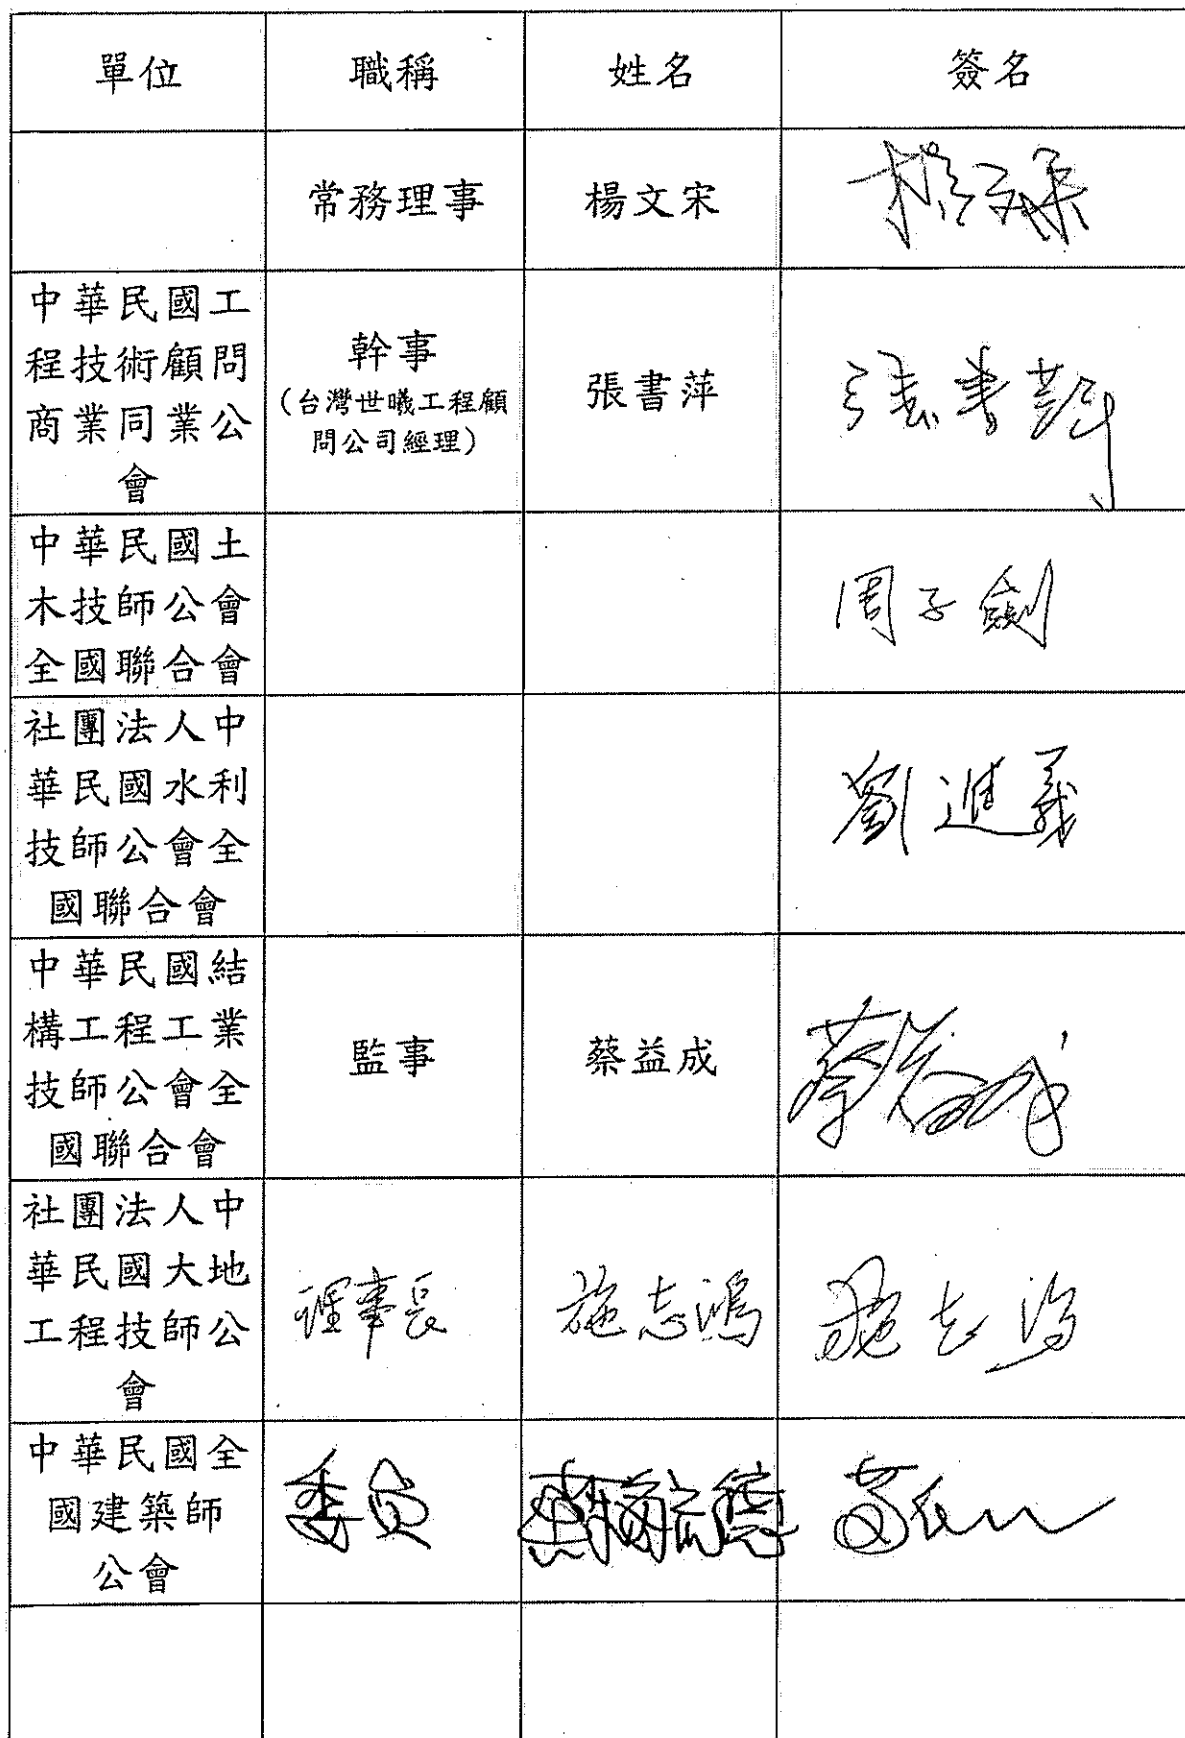 單位 職稱 姓名 簽名
常務理事 楊文宋 楊文宋
中華民國工
程技術顧問
商業同業公
會
幹事
(台灣世曦工程顧
問公司經理)
張書萍 張書萍
中華民國土
木技師公會
全國聯合會
周子劍
社團法人中
華民國水利
技師公會全
國聯合會
劉進義
中華民國結
構工程工業
技師公會全
國聯合會
監事 蔡益成 蔡益成
社團法人中
華民國大地
工程技師公
會
理事長 施志鴻 施志鴻
中華民國全
國建築師
公會
委員